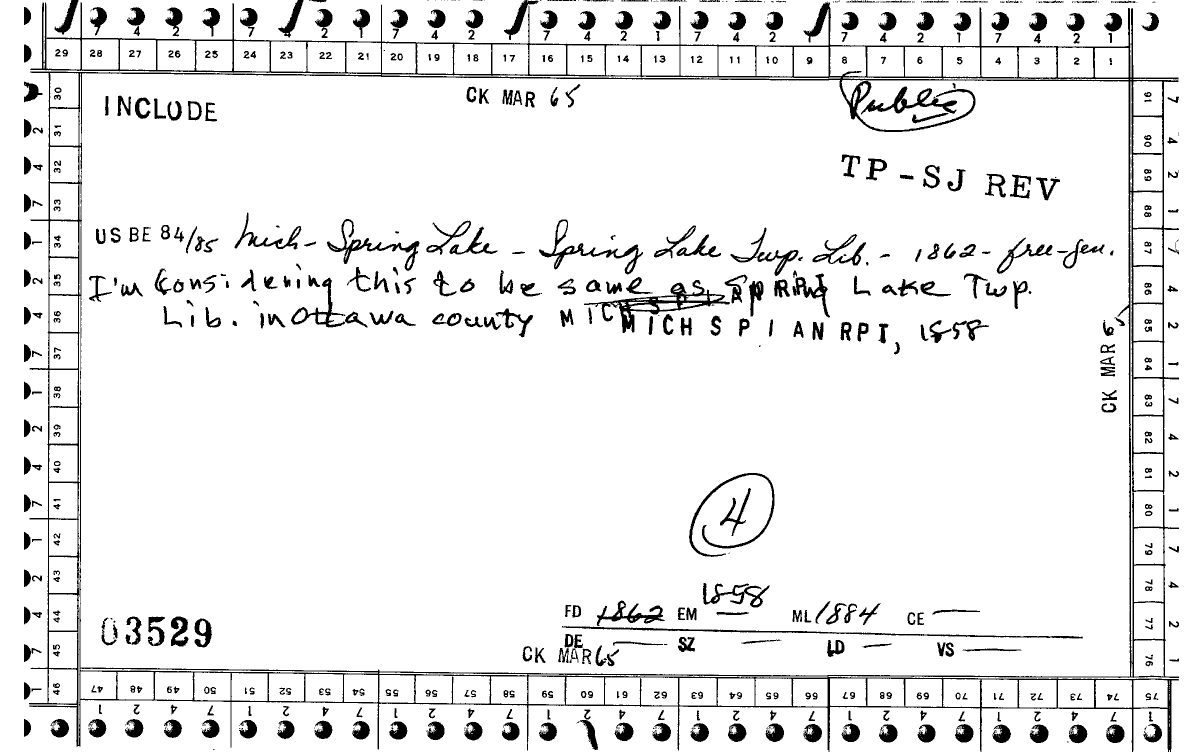 7 4 2 1 7 4 2 1 7 4 2 1 7 4 2 1 7 4 2 1 7 4 2 1 7 4 2 1
29 28 27 26 25 24 23 22 21 20 19 18 17 16 15 14 13 12 11 10 9 8 7 6 5 4 3 2 1
INCLUDE
CK MAR 65
Public
TP-SJ REV
US BE 84/85 Mich - Spring Lake - Spring Lake Twp. Lib. - 1862 - free-gen.
I'm considering this to be same as Spring Lake Twp.
Lib. in Ottawa county MICH SPI AN RPI
MICH S P I AN RPI, 1858
CK MAR 65
4
1858
FD 1862 EM — ML 1884 CE —
03529
DE — SZ — LD — VS —
CK MAR 65
30 31 32 33 34 35 36 37 38 39 40 41 42 43 44 45 46
91 90 89 88 87 86 85 84 83 82 81 80 79 78 77 76 75
47 48 49 50 51 52 53 54 55 56 57 58 59 60 61 62 63 64 65 66 67 68 69 70 71 72 73 74
1 2 4 7 1 2 4 7 1 2 4 7 1 2 4 7 1 2 4 7 1 2 4 7 1 2 4 7